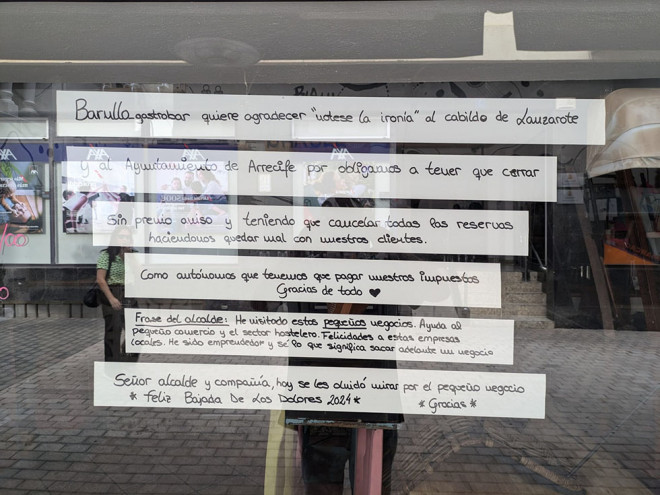 Barulla gastrobar quiere agradecer "notese la ironía" al cabildo de Lanzarote
y al Ayuntamiento de Arrecife por obligarnos a tener que cerrar
Sin previo aviso y teniendo que cancelar todas las reservas
haciendonos quedar mal con nuestros clientes.
Como autónomos que tenemos que pagar nuestros impuestos
Gracias de todo ♥
Frase del alcalde: He visitado estos pequeños negocios. Ayuda al
pequeño comercio y el sector hostelero. Felicidades a estas empresas
locales. He sido emprendedor y sé lo que significa sacar adelante un negocio
Señor alcalde y compañía, hoy se les olvidó mirar por el pequeño negocio
* Feliz Bajada De Los Dolores 2024 * * Gracias *
AXA
AXA
AXA